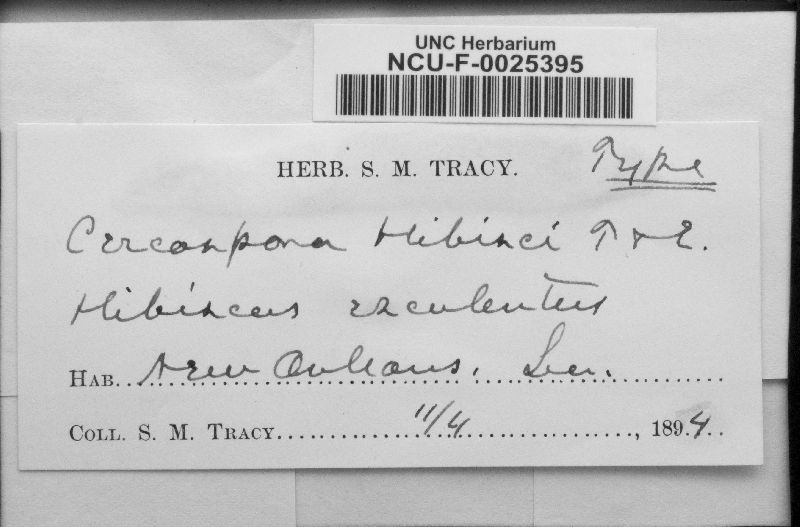 UNC Herbarium
NCU-F-0025395
HERB. S. M. TRACY. Type
Cercospora Hibisci T & E.
Hibiscus esculentus
HAB. New Orleans, La.
COLL. S. M. TRACY. 11/4, 1894